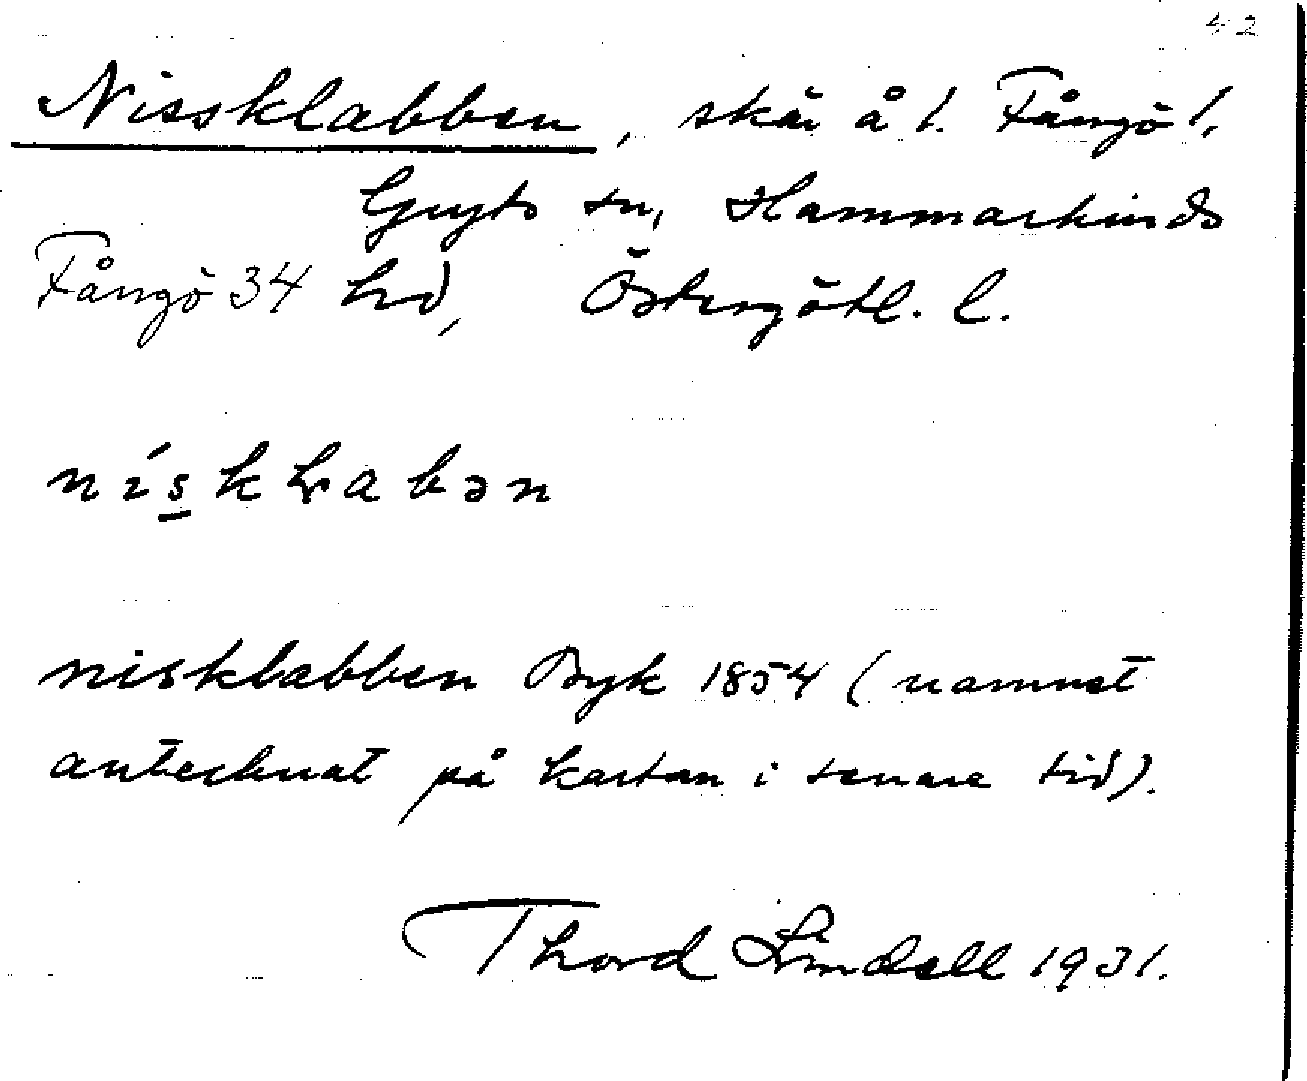 42
Nissklabben, skär å l. Fångö l.
Gryts sn, Hammarkinds
Fångö 34 hd, Östergötl. l.
nisklabən
nisklabben Byk 1854 (namnet
antecknat på kartan i senare tid).
Thord Lindell 1931.